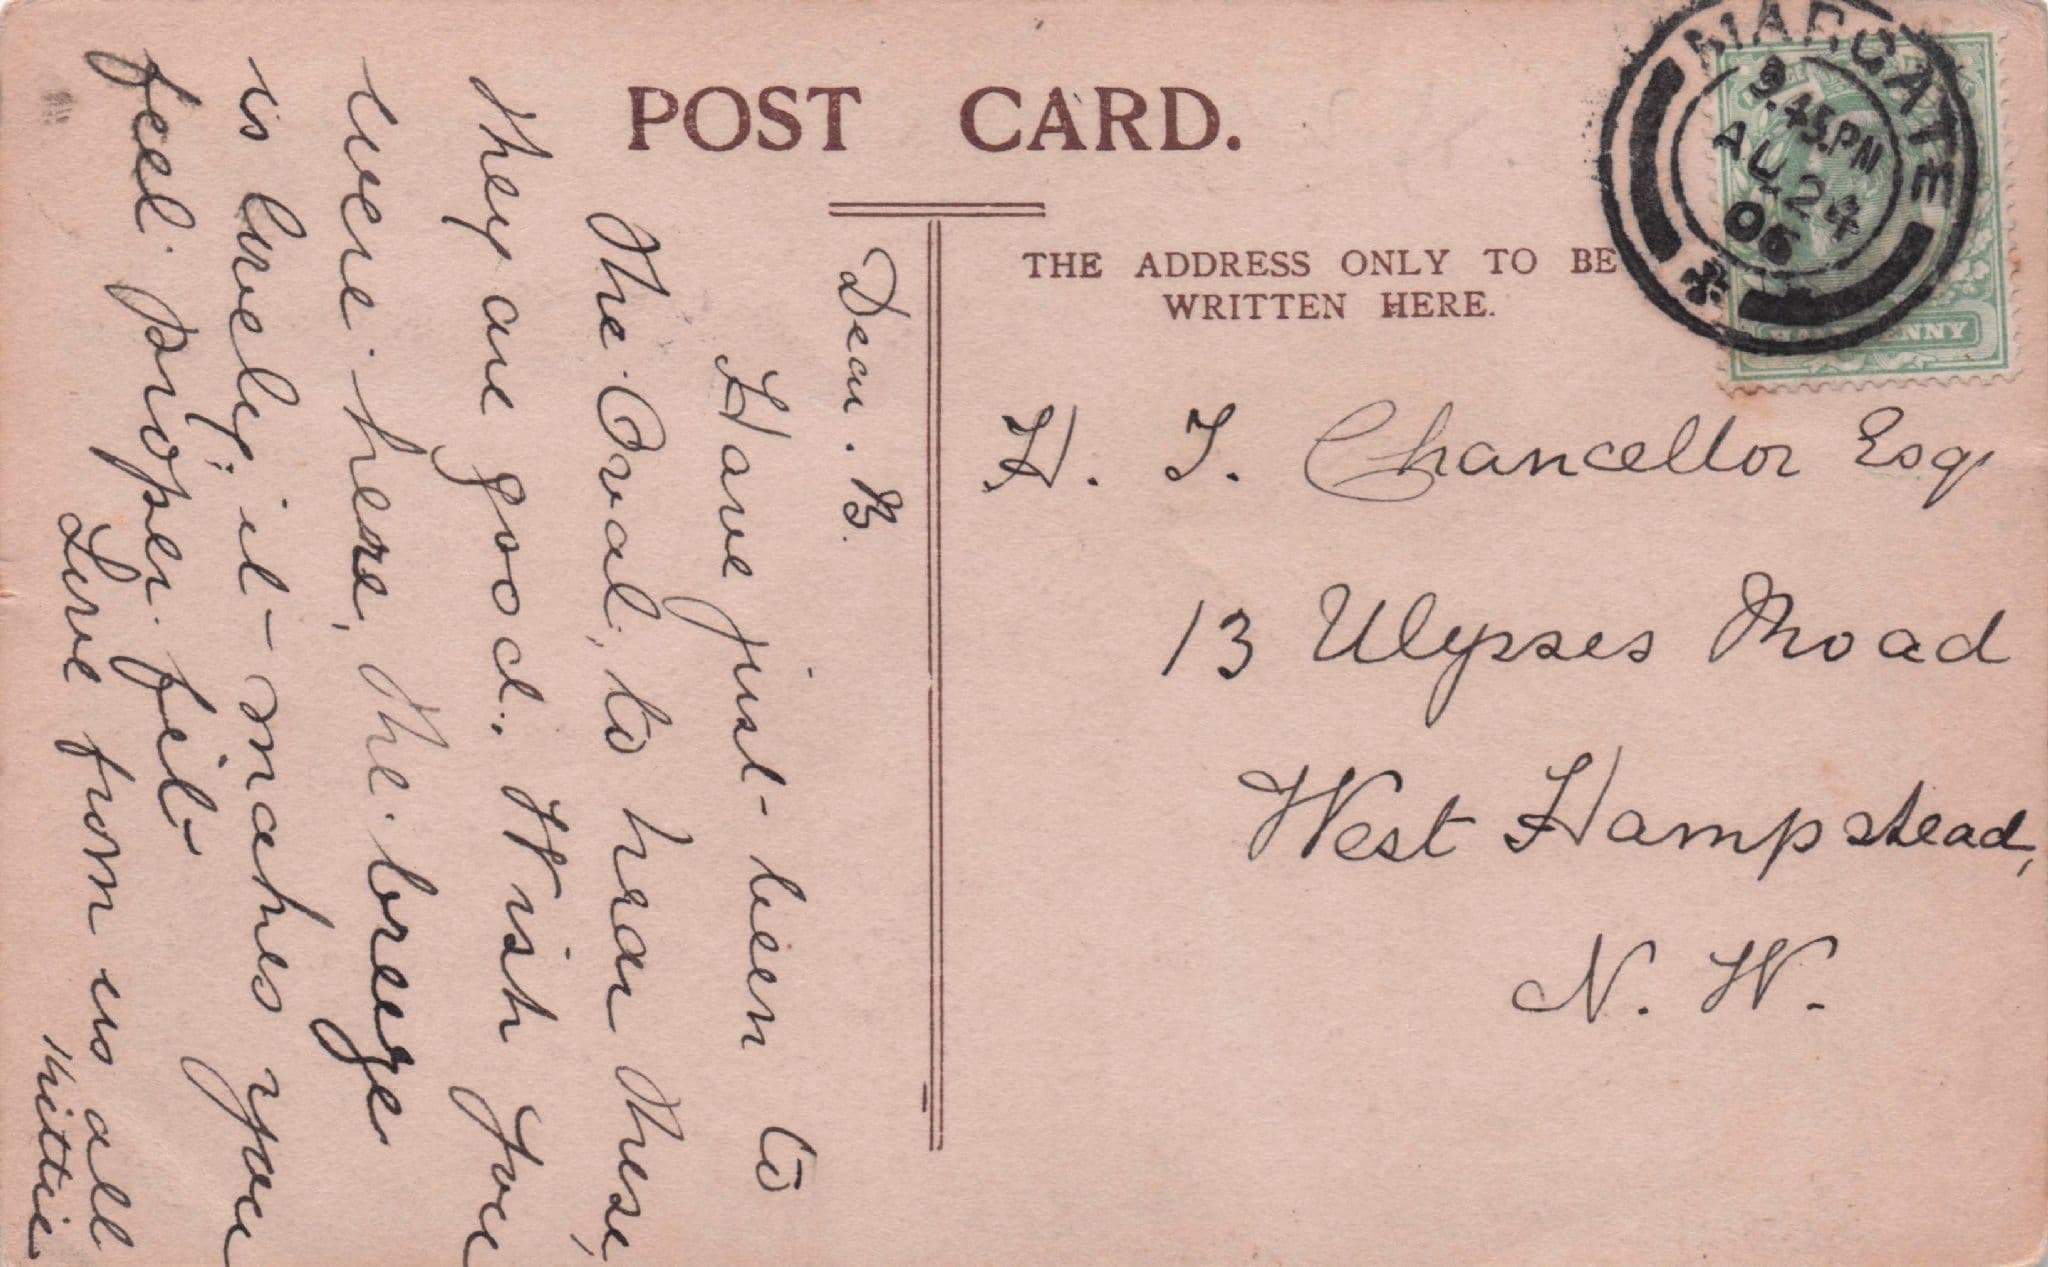 POST CARD.
THE ADDRESS ONLY TO BE
WRITTEN HERE.
MARGATE
9.45.PM
AU 24
06
HALFPENNY
H. J. Chancellor Esq
13 Ulysses Road
West Hampstead,
N. W.
Dear. B.
Have just been to
the Oval, to hear these,
they are good. Wish you
were here, the breeze
is lovely, it makes you
feel proper fit
Love from us all
Kittie